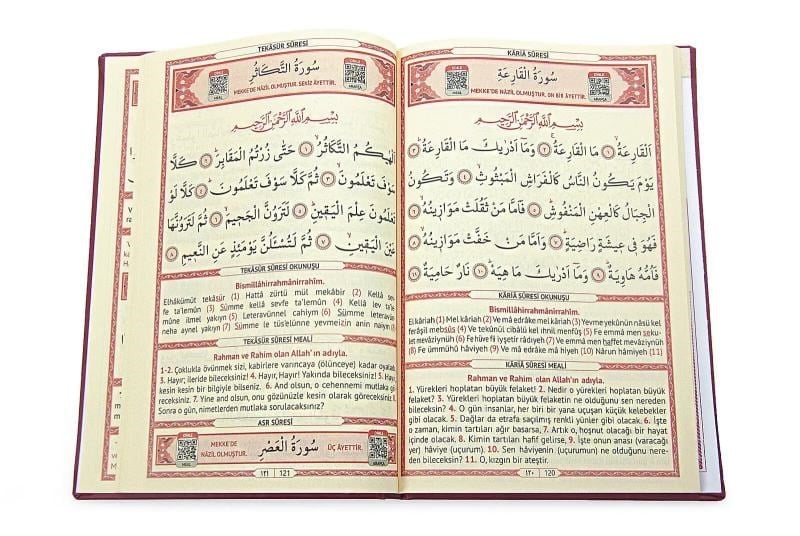 KÂRİA SÛRESİ
سُورَةُ الْقَارِعَةِ
DİNLE
MEAL
DİNLE
ARAPÇA
MEKKE'DE NÂZİL OLMUŞTUR. ON BİR ÂYETTİR.
بِسْمِ اللّٰهِ الرَّحْمٰنِ الرَّحِيمِ
اَلْقَارِعَةُۙ ١ مَا الْقَارِعَةُۚ ٢ وَمَٓا اَدْرٰيكَ مَا الْقَارِعَةُۜ ٣
يَوْمَ يَكُونُ النَّاسُ كَالْفَرَاشِ الْمَبْثُوثِۙ ٤ وَتَكُونُ
الْجِبَالُ كَالْعِهْنِ الْمَنْفُوشِۜ ٥ فَاَمَّا مَنْ ثَقُلَتْ مَوَازِينُهُۙ ٦
فَهُوَ فِي عِيشَةٍ رَاضِيَةٍۜ ٧ وَاَمَّا مَنْ خَفَّتْ مَوَازِينُهُۙ ٨
فَاُمُّهُ هَاوِيَةٌۜ ٩ وَمَٓا اَدْرٰيكَ مَا هِيَهْۜ ١٠ نَارٌ حَامِيَةٌ ١١
KÂRİA SÛRESİ OKUNUŞU
Bismillâhirrahmânirrahîm.
El kâriah (1) Mel kâriah (2) Ve mâ edrâke mel kâriah (3) Yevme yekûnün nâsü kel
ferâşil mebsûs (4) Ve tekûnül cibâlü kel ıhnil menfûş (5) Fe emmâ men seku-
let mevâziynüh (6) Fe hüve fî ıyşetir râdıyeh (7) Ve emmâ men haffet mevâziynüh
(8) Fe ümmühû hâviyeh (9) Ve mâ edrâke mâ hiyeh (10) Nârun hâmiyeh (11)
KÂRİÂ SÛRESİ MEALİ
Rahman ve Rahim olan Allah'ın adıyla.
1. Yürekleri hoplatan büyük felaket! 2. Nedir o yürekleri hoplatan büyük
felaket? 3. Yürekleri hoplatan büyük felaketin ne olduğunu sen nereden
bileceksin? 4. O gün insanlar, her biri bir yana uçuşan küçük kelebekler
gibi olacak. 5. Dağlar da etrafa saçılmış renkli yünler gibi olacak. 6. İşte
o zaman, kimin tartıları ağır basarsa, 7. Artık o, hoşnut olacağı bir hayat
içinde olacak. 8. Kimin tartıları hafif gelirse, 9. İşte onun anası (varacağı
yer) hâviye (uçurum). 10. Sen hâviyenin (uçurumun) ne olduğunu nere-
den bileceksin? 11. O, kızgın bir ateştir.
١٢٠ 120
TEKÂSÜR SÛRESİ
سُورَةُ التَّكَاثُرِ
DİNLE
MEAL
DİNLE
ARAPÇA
MEKKE'DE NÂZİL OLMUŞTUR. SEKİZ ÂYETTİR.
بِسْمِ اللّٰهِ الرَّحْمٰنِ الرَّحِيمِ
اَلْهٰيكُمُ التَّكَاثُرُۙ ١ حَتّٰى زُرْتُمُ الْمَقَابِرَۜ ٢ كَلَّا
سَوْفَ تَعْلَمُونَۙ ٣ ثُمَّ كَلَّا سَوْفَ تَعْلَمُونَۜ ٤ كَلَّا لَوْ
تَعْلَمُونَ عِلْمَ الْيَقِينِۜ ٥ لَتَرَوُنَّ الْجَحِيمَۙ ٦ ثُمَّ لَتَرَوُنَّهَا
عَيْنَ الْيَقِينِۙ ٧ ثُمَّ لَتُسْـَٔلُنَّ يَوْمَئِذٍ عَنِ النَّعِيمِ ٨
TEKÂSÜR SÛRESİ OKUNUŞU
Bismillâhirrahmânirrahîm.
Elhâkümüt tekâsür (1) Hattâ zürtü mül mekâbir (2) Kellâ sev-
fe ta'lemûn (3) Sümme kellâ sevfe ta'lemûn (4) Kellâ lev ta'le
mûne ılmel yakıyn (5) Leteravünnel cahiym (6) Sümme leteravün
neha aynel yakıyn (7) Sümme le tüs'elünne yevmeizin anin naiym (8)
TEKÂSÜR SÛRESİ MEALİ
Rahman ve Rahim olan Allah'ın adıyla.
1-2. Çoklukla övünmek sizi, kabirlere varıncaya (ölünceye) kadar oyaladı.
3. Hayır; ileride bileceksiniz! 4. Hayır, Hayır! Yakında bileceksiniz! 5. Hayır,
kesin kesin bir bilgiyle bilseniz. 6. And olsun, o cehennemi mutlaka gö-
receksiniz. 7. Yine and olsun, onu gözünüzle kesin olarak göreceksiniz. 8.
Sonra o gün, nimetlerden mutlaka sorulacaksınız?
ASR SÛRESİ
DİNLE
MEAL
MEKKE'DE
NÂZİL OLMUŞTUR.
سُورَةُ الْعَصْرِ
ÜÇ ÂYETTİR.
DİNLE
ARAPÇA
١٢١ 121